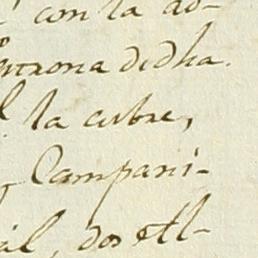 con la ad-
Patrona dicha.
la cubre,
Campani-
al, dos Al-